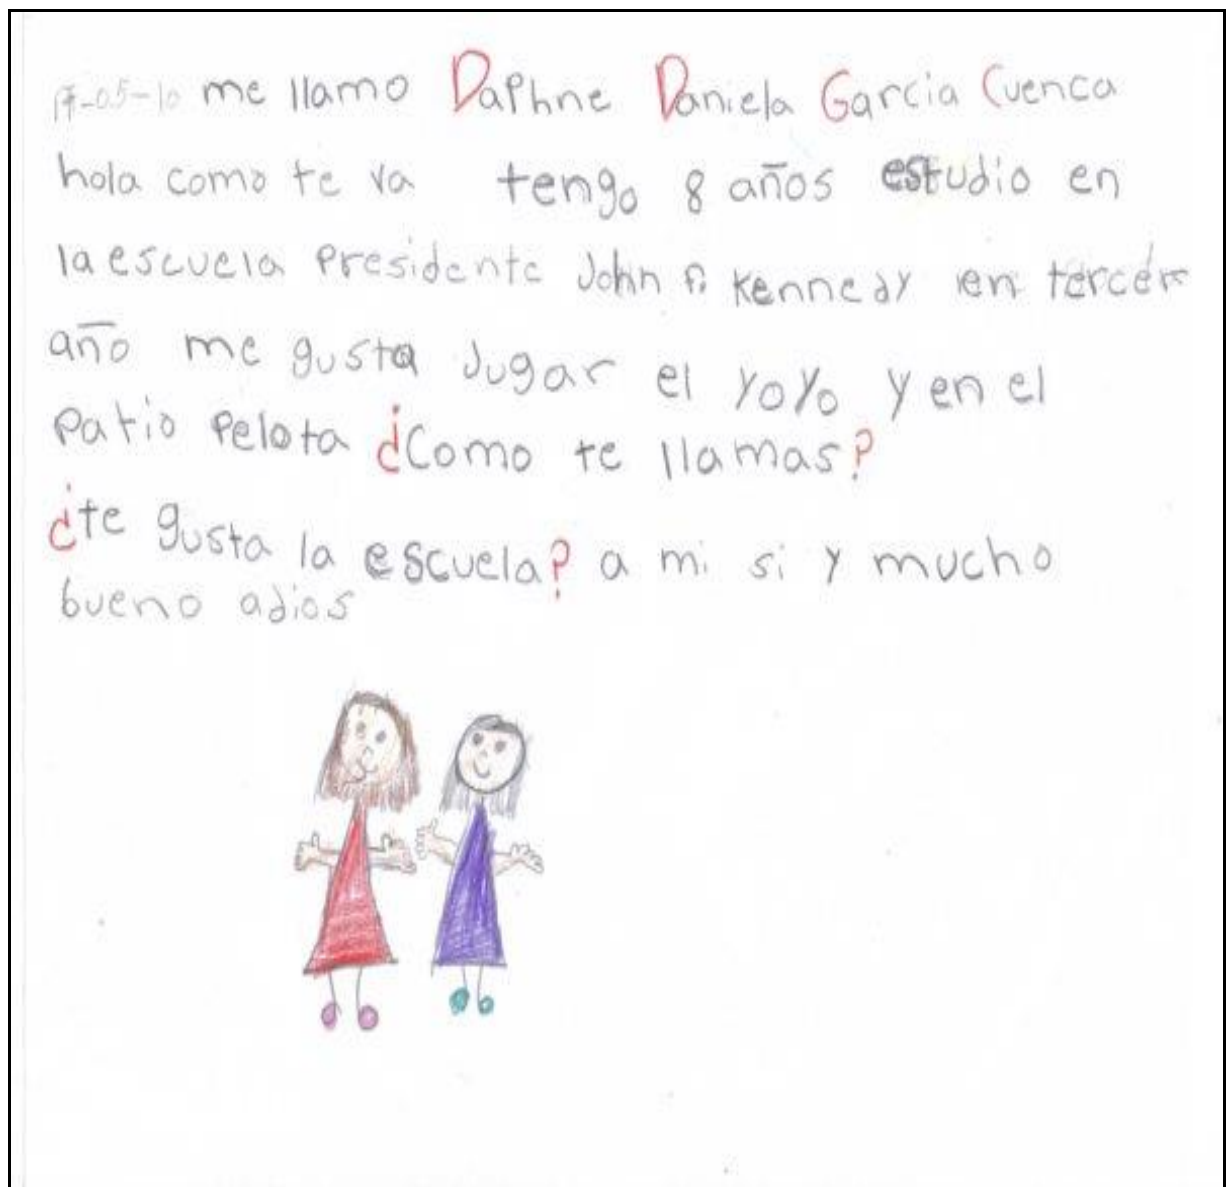 17-05-10 me llamo Daphne Daniela Garcia Cuenca
hola como te va tengo 8 años estudio en
la escuela Presidente John F. Kennedy en tercer
año me gusta Jugar el yoyo y en el
Patio Pelota ¿Como te llamas?
¿te gusta la escuela? a mi si y mucho
bueno adios